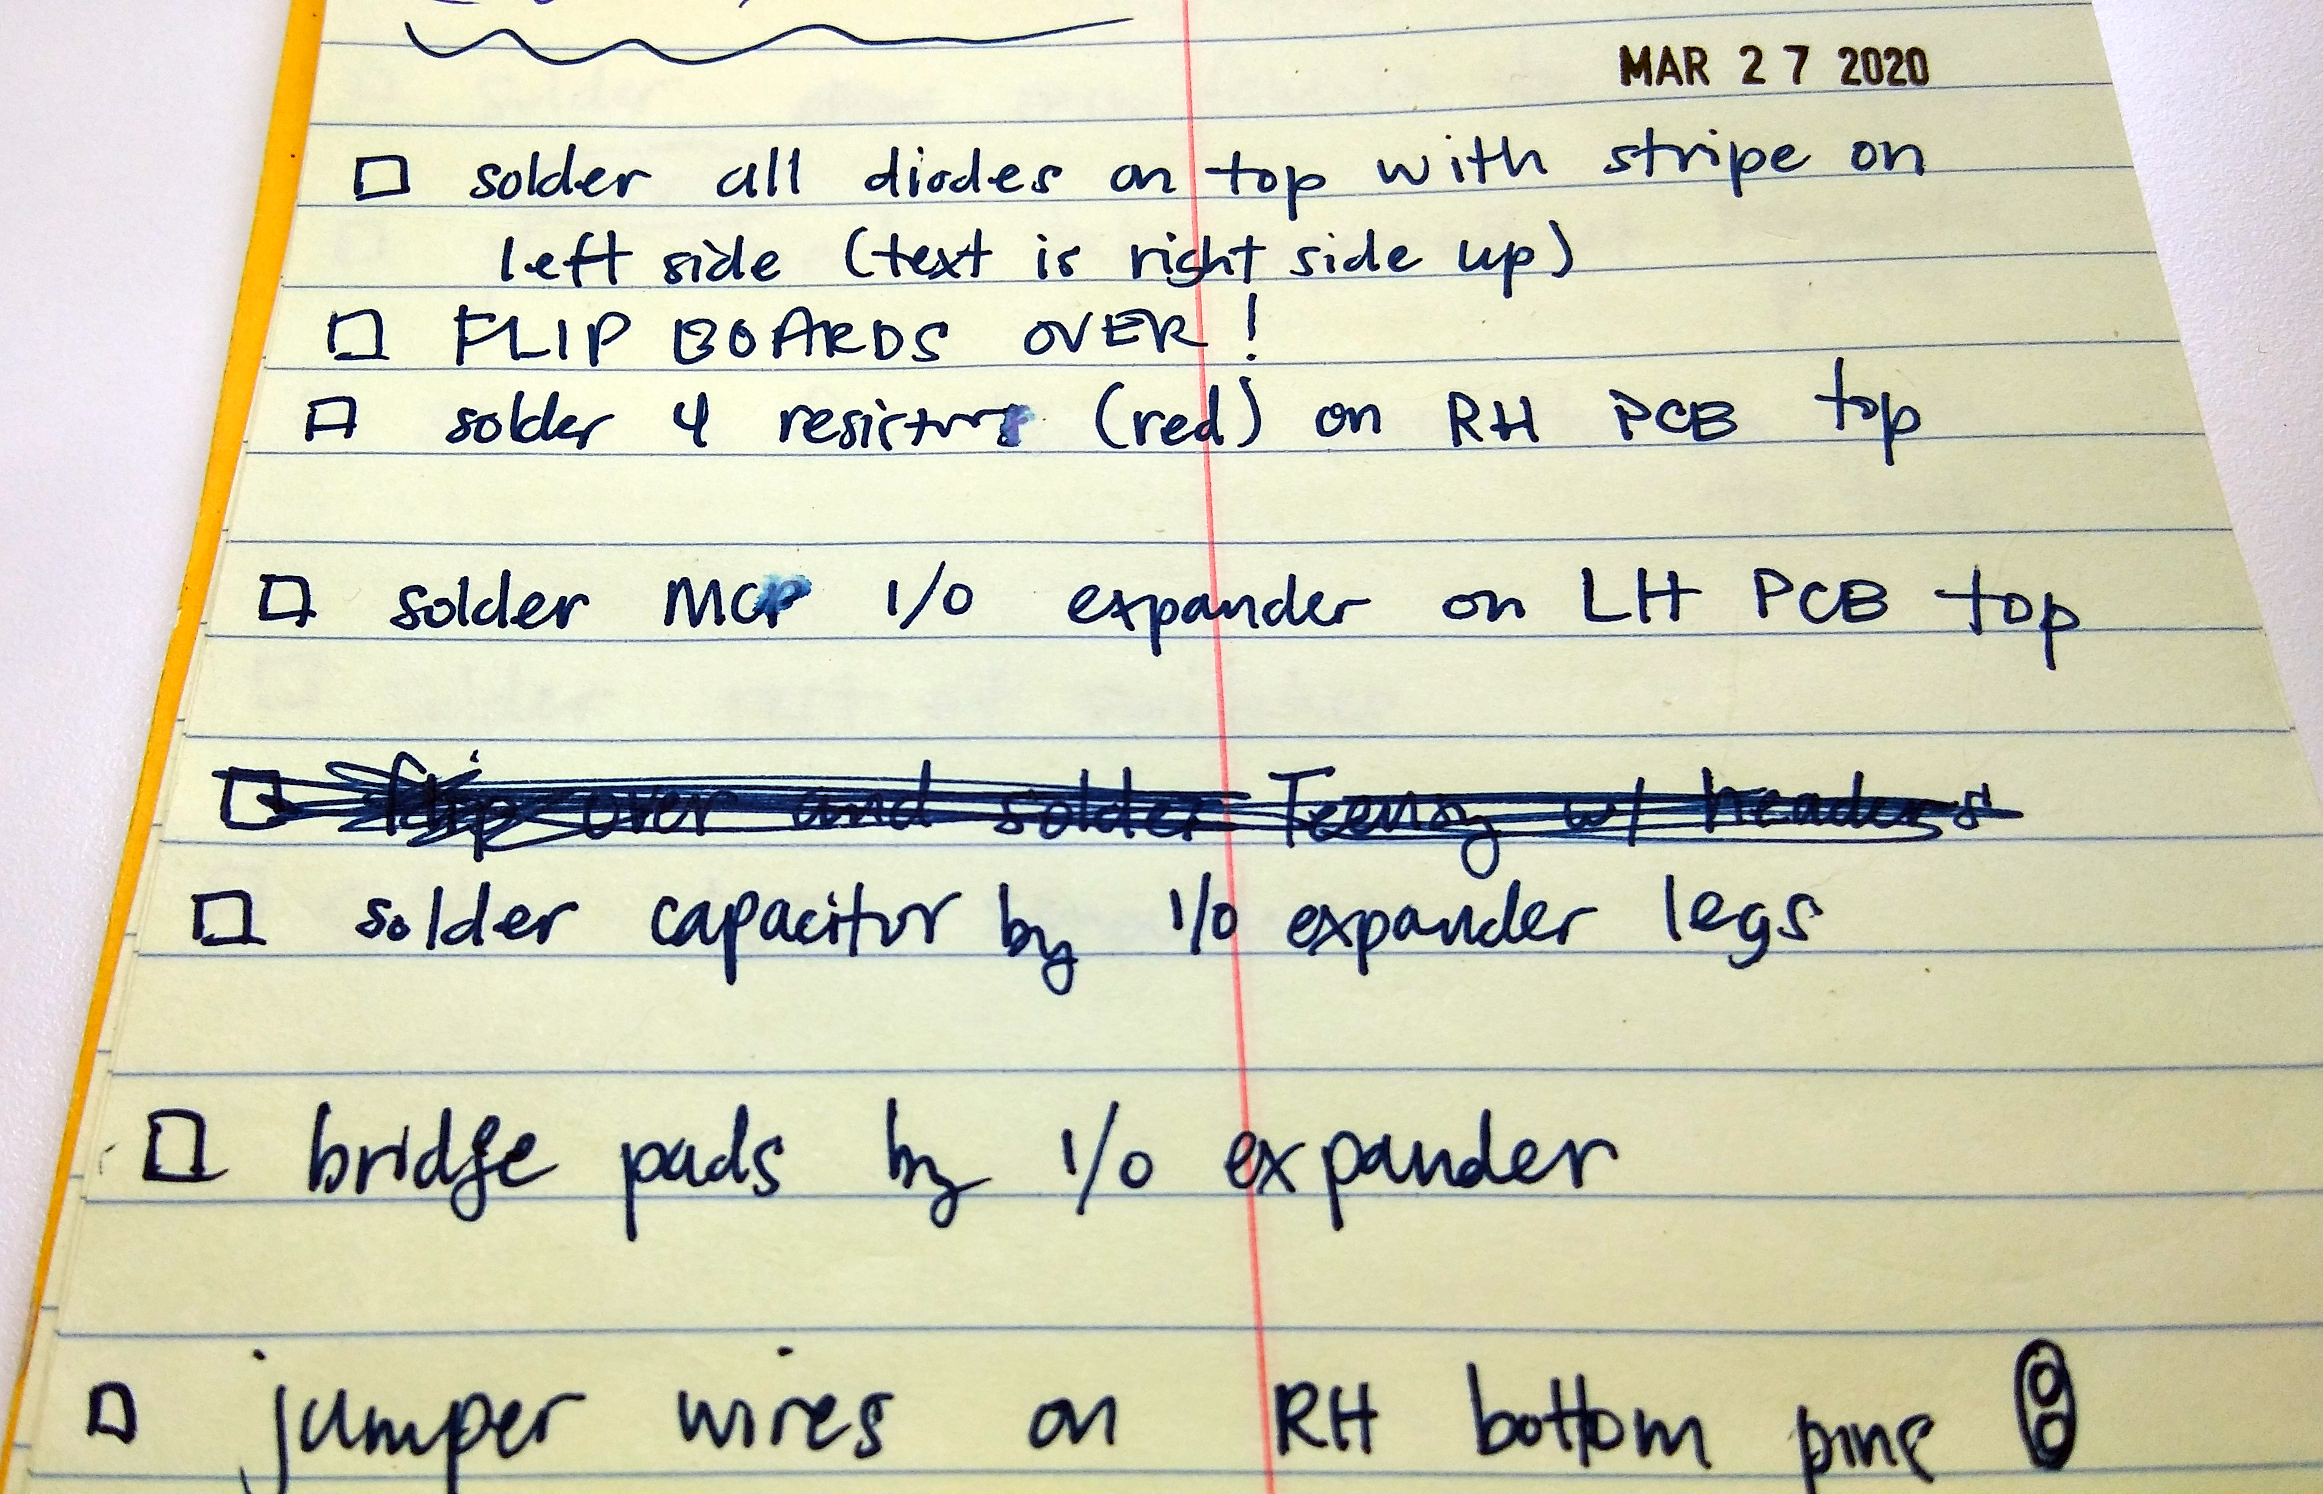 MAR 27 2020
□ solder all diodes on top with stripe on
left side (text is right side up)
□ FLIP BOARDS OVER!
□ solder 4 resistors (red) on RH PCB top
□ solder MCP I/O expander on LH PCB top
□ flip over and solder Teensy w/ headers
□ solder capacitor by I/O expander legs
□ bridge pads by I/O expander
□ jumper wires on RH bottom pins